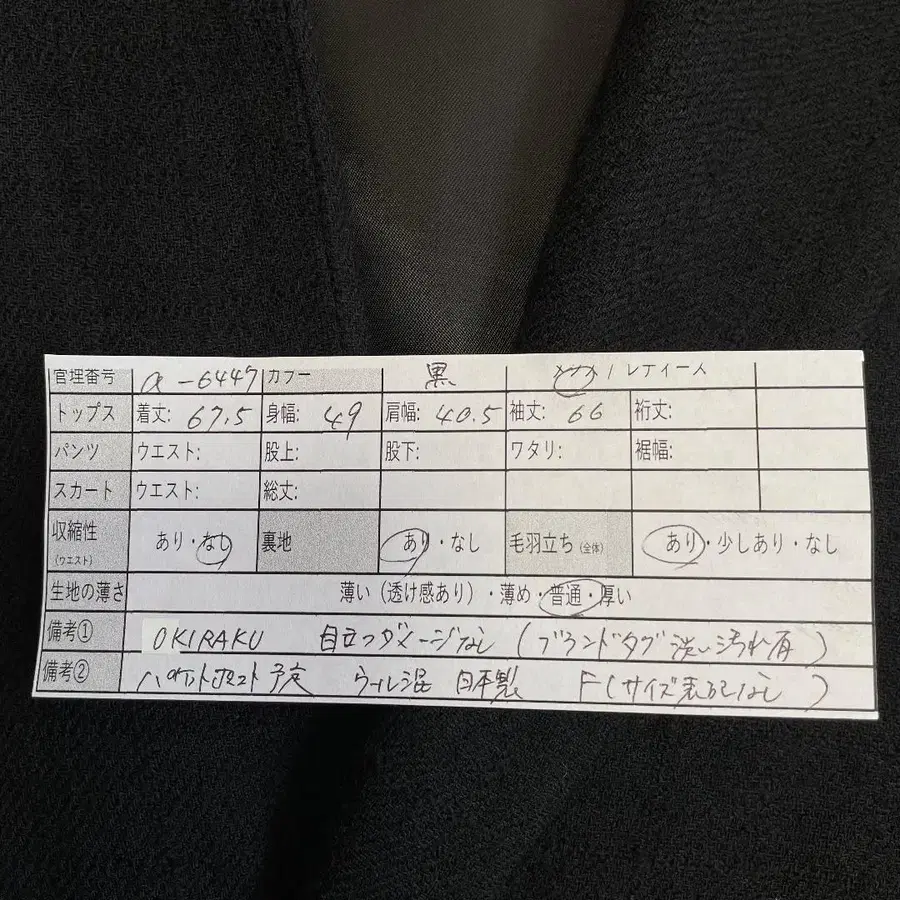 管理番号 a-6447 カラー 黒 メンズ / レディース
トップス 着丈: 67.5 身幅: 49 肩幅: 40.5 袖丈: 66 裄丈:
パンツ ウエスト: 股上: 股下: ワタリ: 裾幅:
スカート ウエスト: 総丈:
収縮性 (ウエスト) あり・なし 裏地 あり・なし 毛羽立ち (全体) あり・少しあり・なし
生地の薄さ 薄い (透け感あり)・薄め・普通・厚い
備考① OKIRAKU 目立つダメージなし (ブランドタグ 淡い汚れ有)
備考② パケットポスト予定 ウール混 日本製 F(サイズ表記なし)